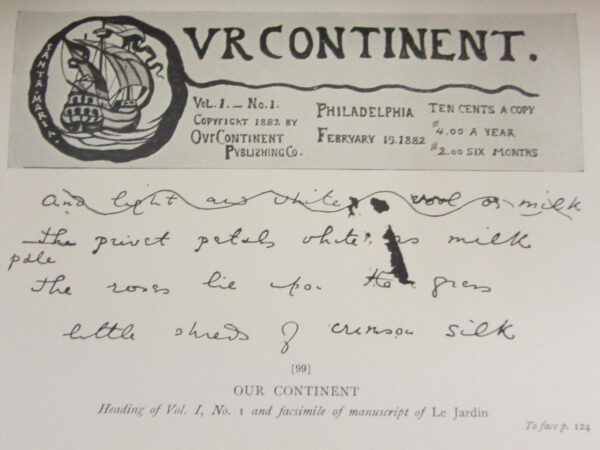 OVR CONTINENT.
SANTA MARIA.
VOL. 1. – No. 1.
COPYRIGHT 1882 BY
OVR CONTINENT
PVBLISHING CO.
PHILADELPHIA
FEBRVARY 15. 1882
TEN CENTS A COPY
$4.00 A YEAR
$2.00 SIX MONTHS
And light and white wool or milk
The privet petals white as milk
pale
The roses lie upon the grass
little shreds of crimson silk
[99]
OUR CONTINENT
Heading of Vol. I, No. 1 and facsimile of manuscript of Le Jardin
To face p. 124